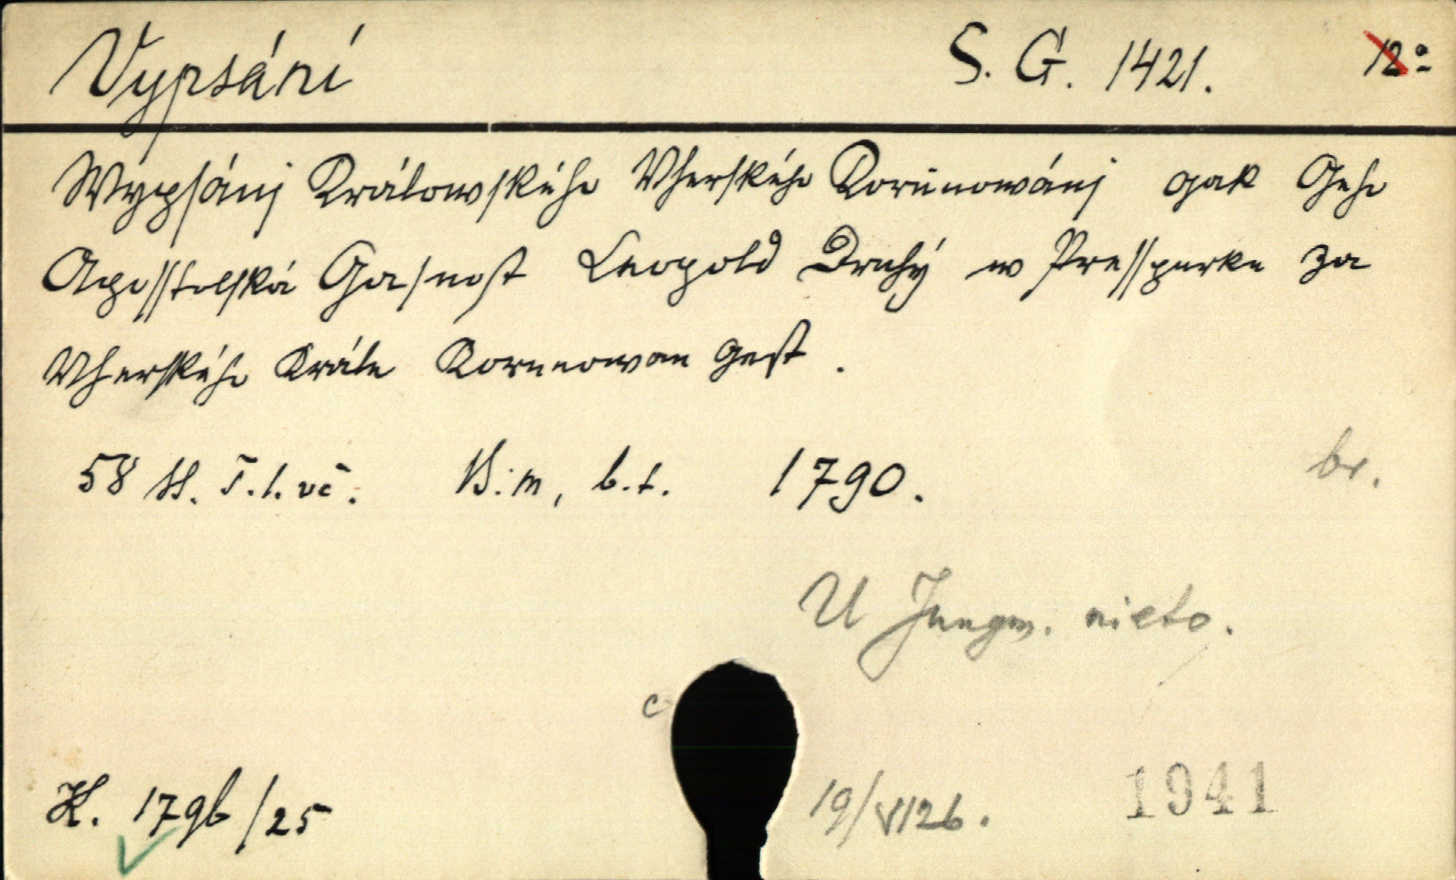 Vypsání S. G. 1421. 12º
Wypsánj Králowského Vherského Korunowánj gak Geho
Aposstolská Gasnost Leopold Druhý w Presspurku za
Vherského Krále Korunowan gest.
58 ss. T. l. vč. B. m, b. t. 1790.
br.
U Jungm. nieto.
c
K. 1796/25 19/VI26. 1941